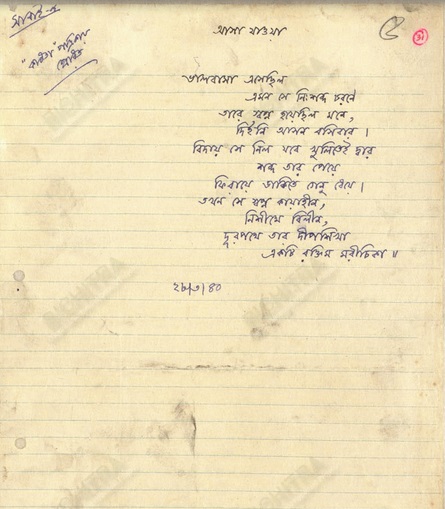 সানাই-এ
"কবিতা" পত্রিকায়
প্রেরিত
আসা যাওয়া
ভালবাসা এসেছিল
এমন সে নিঃশব্দ চরণে
তারে স্বপ্ন হয়েছিল মনে,
দিইনি আসন বসিবার।
বিদায় সে নিল যবে খুলিতেই দ্বার
শব্দ তার পেয়ে
ফিরায়ে ডাকিতে গেনু ধেয়ে।
তখন সে স্বপ্ন কায়াহীন,
নিশীথে বিলীন,
দূরপথে তার দীপশিখা
একটি রক্তিম মরীচিকা॥
২৮|৩|৪০